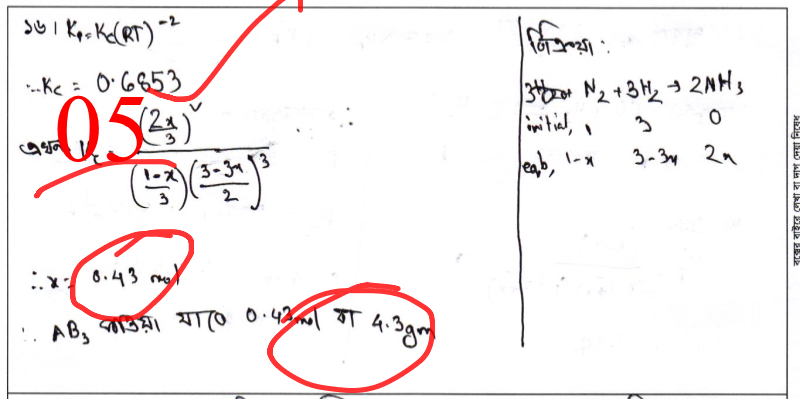 ১৬। Kp = Kc(RT)⁻²
∴ Kc = 0.6853
05
(2x/3)²
(1-x/3) (3-3x/2)³
∴ x = 0.43 mol
∴ AB₃ যাবে 0.43 mol বা 4.3gm
বিক্রিয়া :
N₂ + 3H₂ → 2NH₃
initial, 1 3 0
eqb, 1-x 3-3x 2x
বক্সের বাইরে লেখা বা দাগ দেয়া নিষেধ